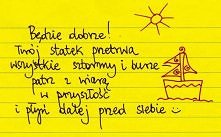 Będzie dobrze!
Twój statek przetrwa
wszystkie sztormy i burze
patrz z wiarą
w przyszłość
i płyń dalej przed siebie